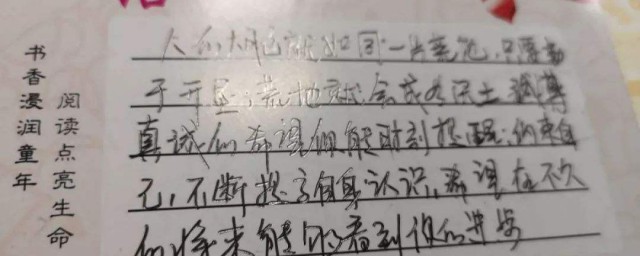 书香浸润童年
阅读点亮生命
人的大脑就如同一片荒地，只要勤
于开垦，荒地就会成为沃土
真诚的希望你能时刻提醒，约束自
己，不断提高自身认识，希望在不久
的将来能够看到你的进步